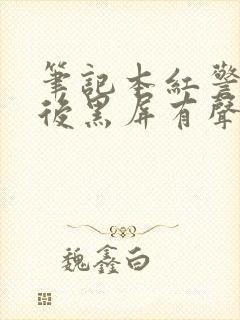 筆記本紅警
後黑屏有聲
魏鑫白